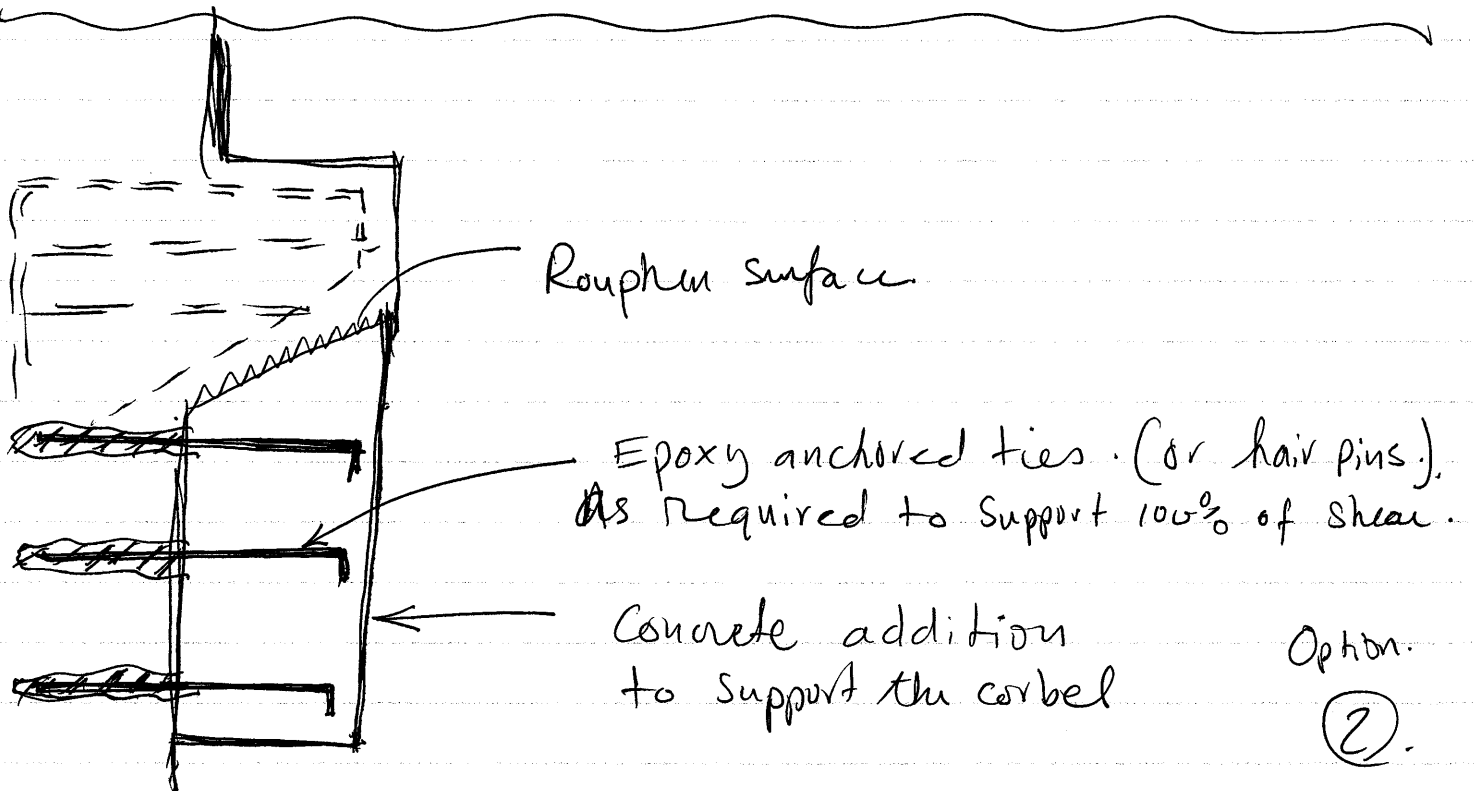 Roughen surface.
Epoxy anchored ties. (or hair pins.).
As required to support 100% of shear.
Concrete addition
to support the corbel
Option.
2.